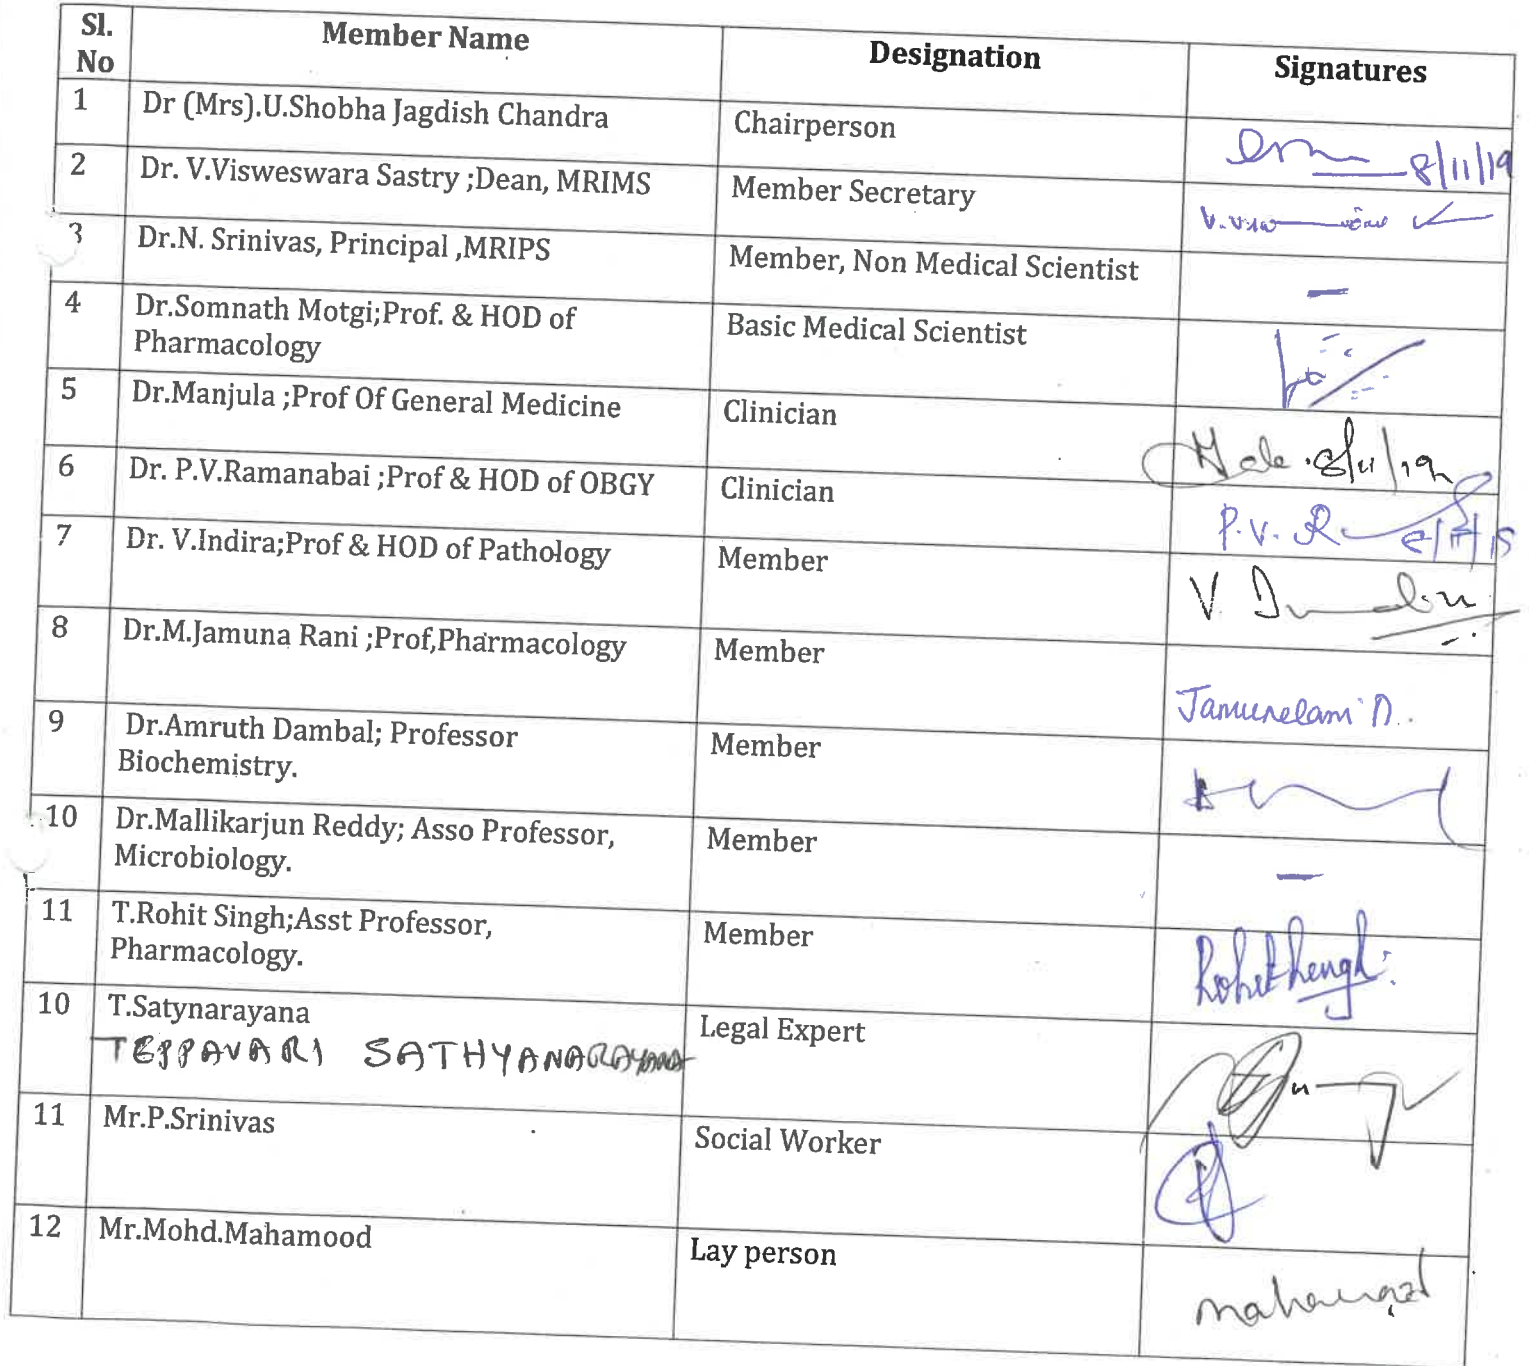 Sl. No Member Name Designation Signatures
1 Dr (Mrs).U.Shobha Jagdish Chandra Chairperson 8/11/19
2 Dr. V.Visweswara Sastry ;Dean, MRIMS Member Secretary
3 Dr.N. Srinivas, Principal ,MRIPS Member, Non Medical Scientist –
4 Dr.Somnath Motgi;Prof. & HOD of Basic Medical Scientist
Pharmacology
5 Dr.Manjula ;Prof Of General Medicine Clinician 8/11/19
6 Dr. P.V.Ramanabai ;Prof & HOD of OBGY Clinician P.V. R
7 Dr. V.Indira;Prof & HOD of Pathology Member V.
8 Dr.M.Jamuna Rani ;Prof,Pharmacology Member
9 Dr.Amruth Dambal; Professor Member
Biochemistry.
10 Dr.Mallikarjun Reddy; Asso Professor, Member –
Microbiology.
11 T.Rohit Singh;Asst Professor, Member
Pharmacology.
10 T.Satynarayana Legal Expert
TEPPAVARI SATHYANARAYANA
11 Mr.P.Srinivas Social Worker
12 Mr.Mohd.Mahamood Lay person